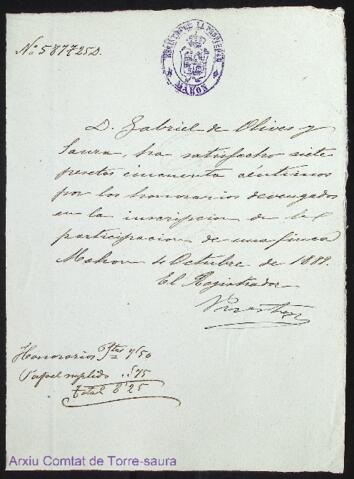 REGISTRO DE LA PROPIEDAD
MAHON
Nº 587725D.
D. Gabriel de Olives y
Saura, ha satisfecho siete
pesetas cincuenta céntimos
por los honorarios devengados
en la inscripcion de la
participacion de una finca
Mahon 4 Octubre de 1888.
El Registrador
Honorarios Ptas 7'50
Papel suplido " '75
Total 8'25
Arxiu Comtat de Torre-saura